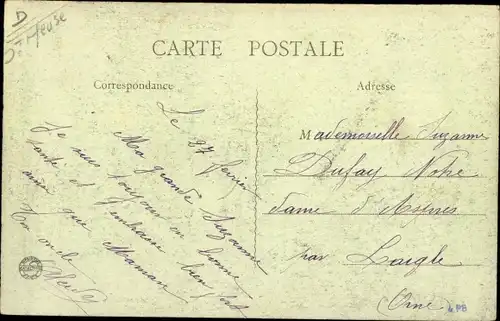 D
Dt Meuse
CARTE POSTALE
Correspondance
Adresse
Le 27 février
Ma grande Suzanne
Je suis toujours en bonne
santé et t'embrasse bien fort
ainsi que Maman
Ton oncle
Mademoiselle Suzanne
Dufay Notre
dame d'Aspres
par Laigle
(Orne)
PB